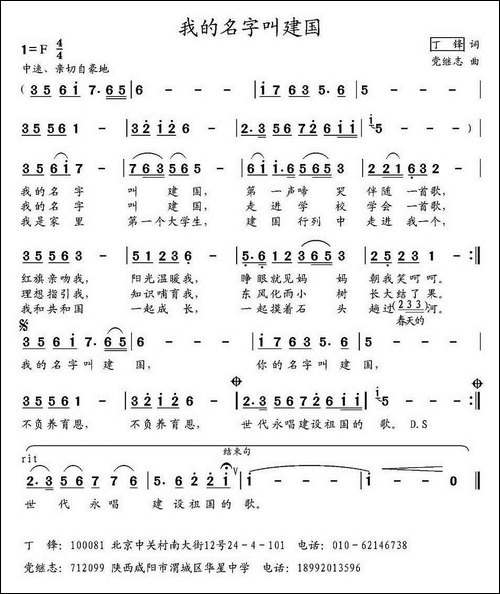 我的名字叫建国
1=F 4/4
丁 锋 词
中速、亲切自豪地
党继志 曲
(3 5 6 i 7·6 5 | 6 - - - | i 7 6 3 5·6 | 5 - - - |
3 5 5 6 1 - | 3 2 i 2 6 - | 2·3 5 6 7 2 6 i i | i 5 - - -) |
3 5 6 i 7 - | 7 6 3 5 6 5 - | 6 i i·6 5 6 5 3 | 2 2 1 6 3 2 - |
我的名字 叫 建国, 第一声啼 哭 伴随 一首歌,
我的名字 叫 建国, 走进学 校 学会 一首歌,
我是家里 第一个大学生, 建国行列中 走进我一个,
3 5 5 6 1 - | 2 3 2 1 6 - | 5·6 1 2 3 3 6 5 3 | 2 5 2 3 1 - :||
红旗亲吻我, 阳光温暖我, 睁眼就见妈 妈 朝我笑呵呵。
理想指引我, 知识哺育我, 东风化雨小 树 长大结了果。
我和共和国 一起成长, 一起摸着石 头 趟过(2 3 3)河。
春天的
3 5 6 i 7·6 5 | 6 - - - | i 7 6 3 5·6 | 5 - - - |
我的名字叫 建 国, 你的名字叫 建 国,
3 5 5 6 1 - | 3 2 i 2 6 - | 2·3 5 6 7 2 6 i i | i 5 - - - :||
不负养育恩, 不负养育恩, 世代永唱建设祖国的 歌。D.S
结束句
rit
2·3 5 6 7 7 6 | 5·6 2 2 i V | i - - - | i - - 0 ||
世 代 永 唱 建 设 祖国的 歌。
丁 锋: 100081 北京中关村南大街12号24-4-101 电话: 010-62146738
党继志: 712099 陕西咸阳市渭城区华星中学 电话: 18992013596